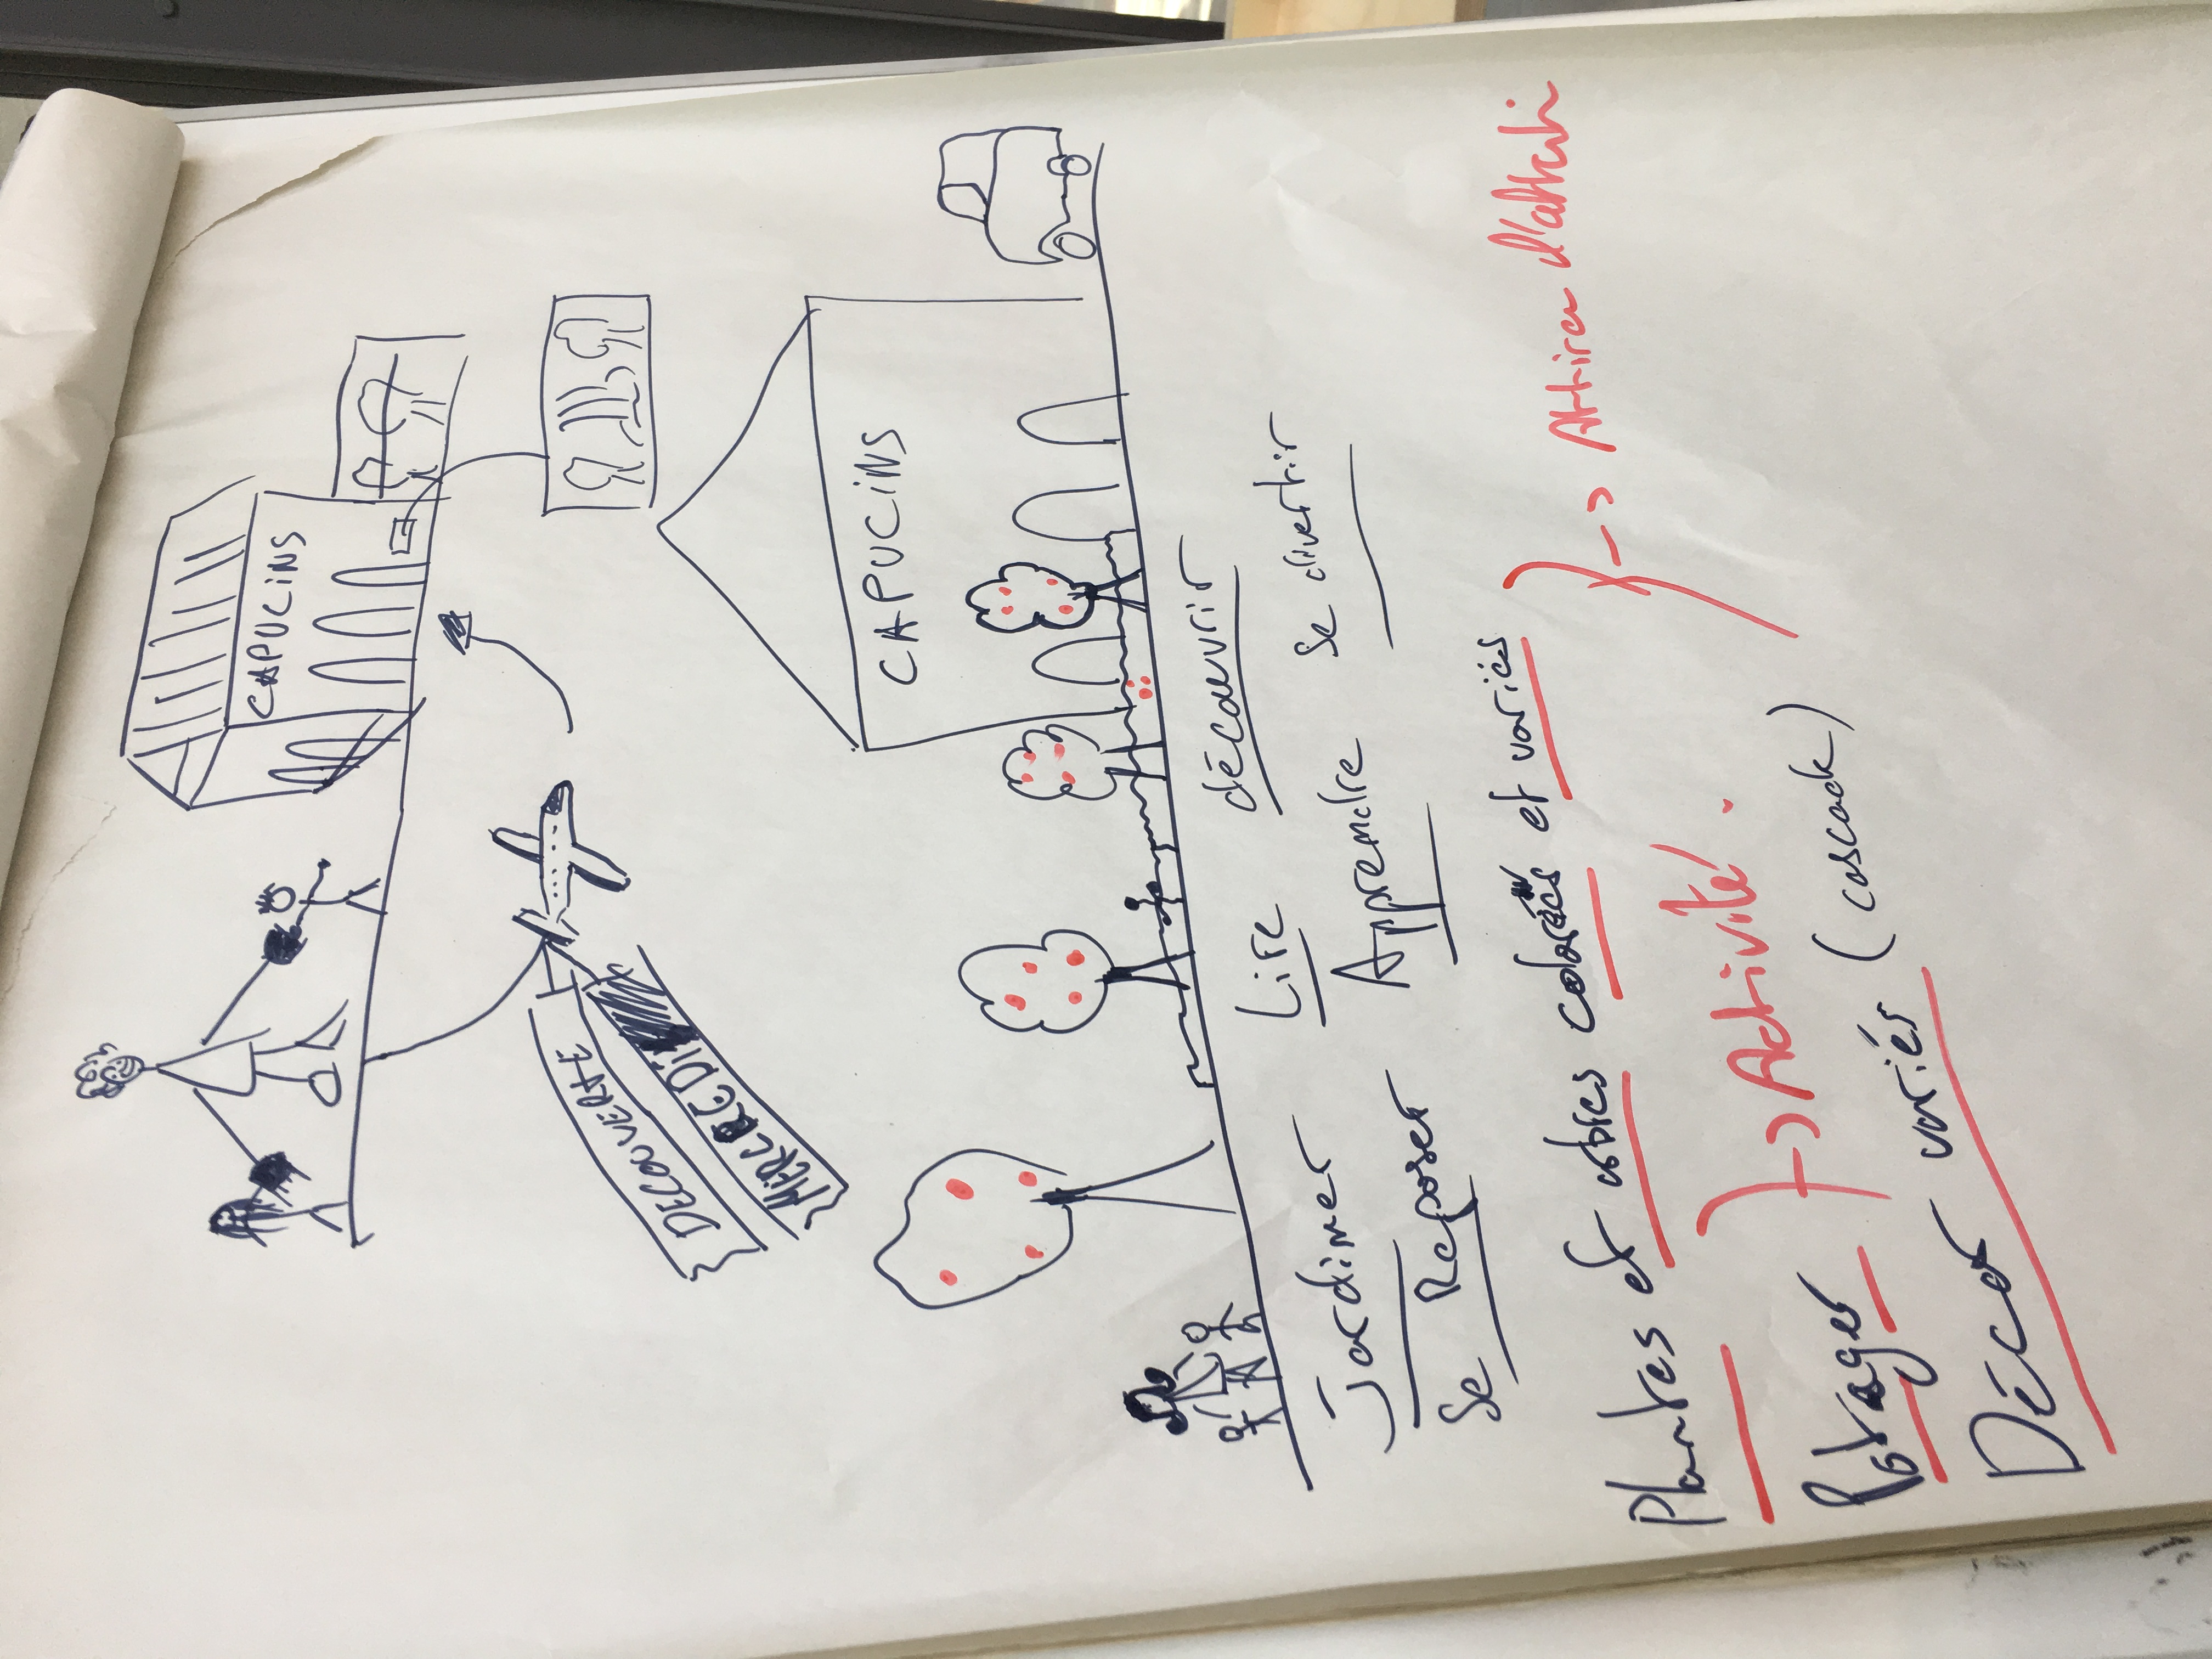 CAPUCINS
DECOUVERTE
MERCREDI
CAPUCINS
Jardiner Lire découvrir
Se Reposer Apprendre se divertir
Plantes et arbres colorés et variés → Attirer
Potager → Activité.
Décor variés (cascade)